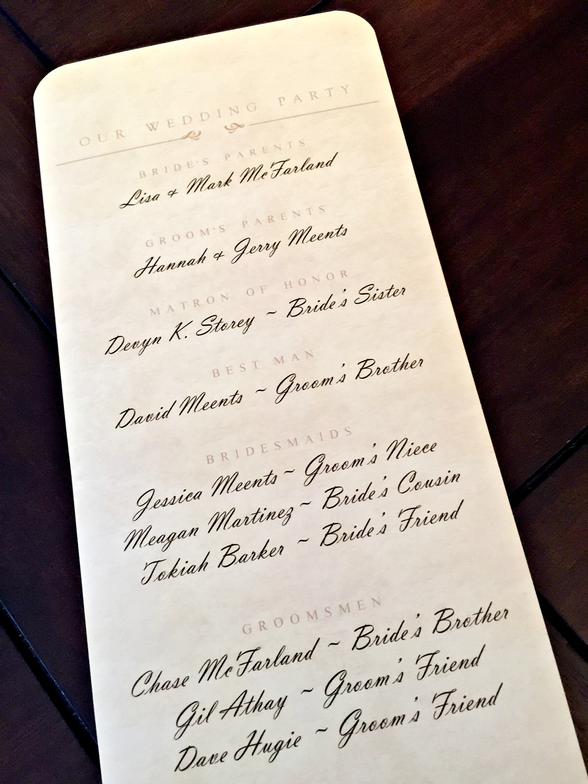 OUR WEDDING PARTY
BRIDE'S PARENTS
Lisa & Mark McFarland
GROOM'S PARENTS
Hannah & Jerry Meents
MATRON OF HONOR
Devyn K. Storey ~ Bride's Sister
BEST MAN
David Meents ~ Groom's Brother
BRIDESMAIDS
Jessica Meents ~ Groom's Niece
Meagan Martinez ~ Bride's Cousin
Tokiah Barker ~ Bride's Friend
GROOMSMEN
Chase McFarland ~ Bride's Brother
Gil Athay ~ Groom's Friend
Dave Hugie ~ Groom's Friend